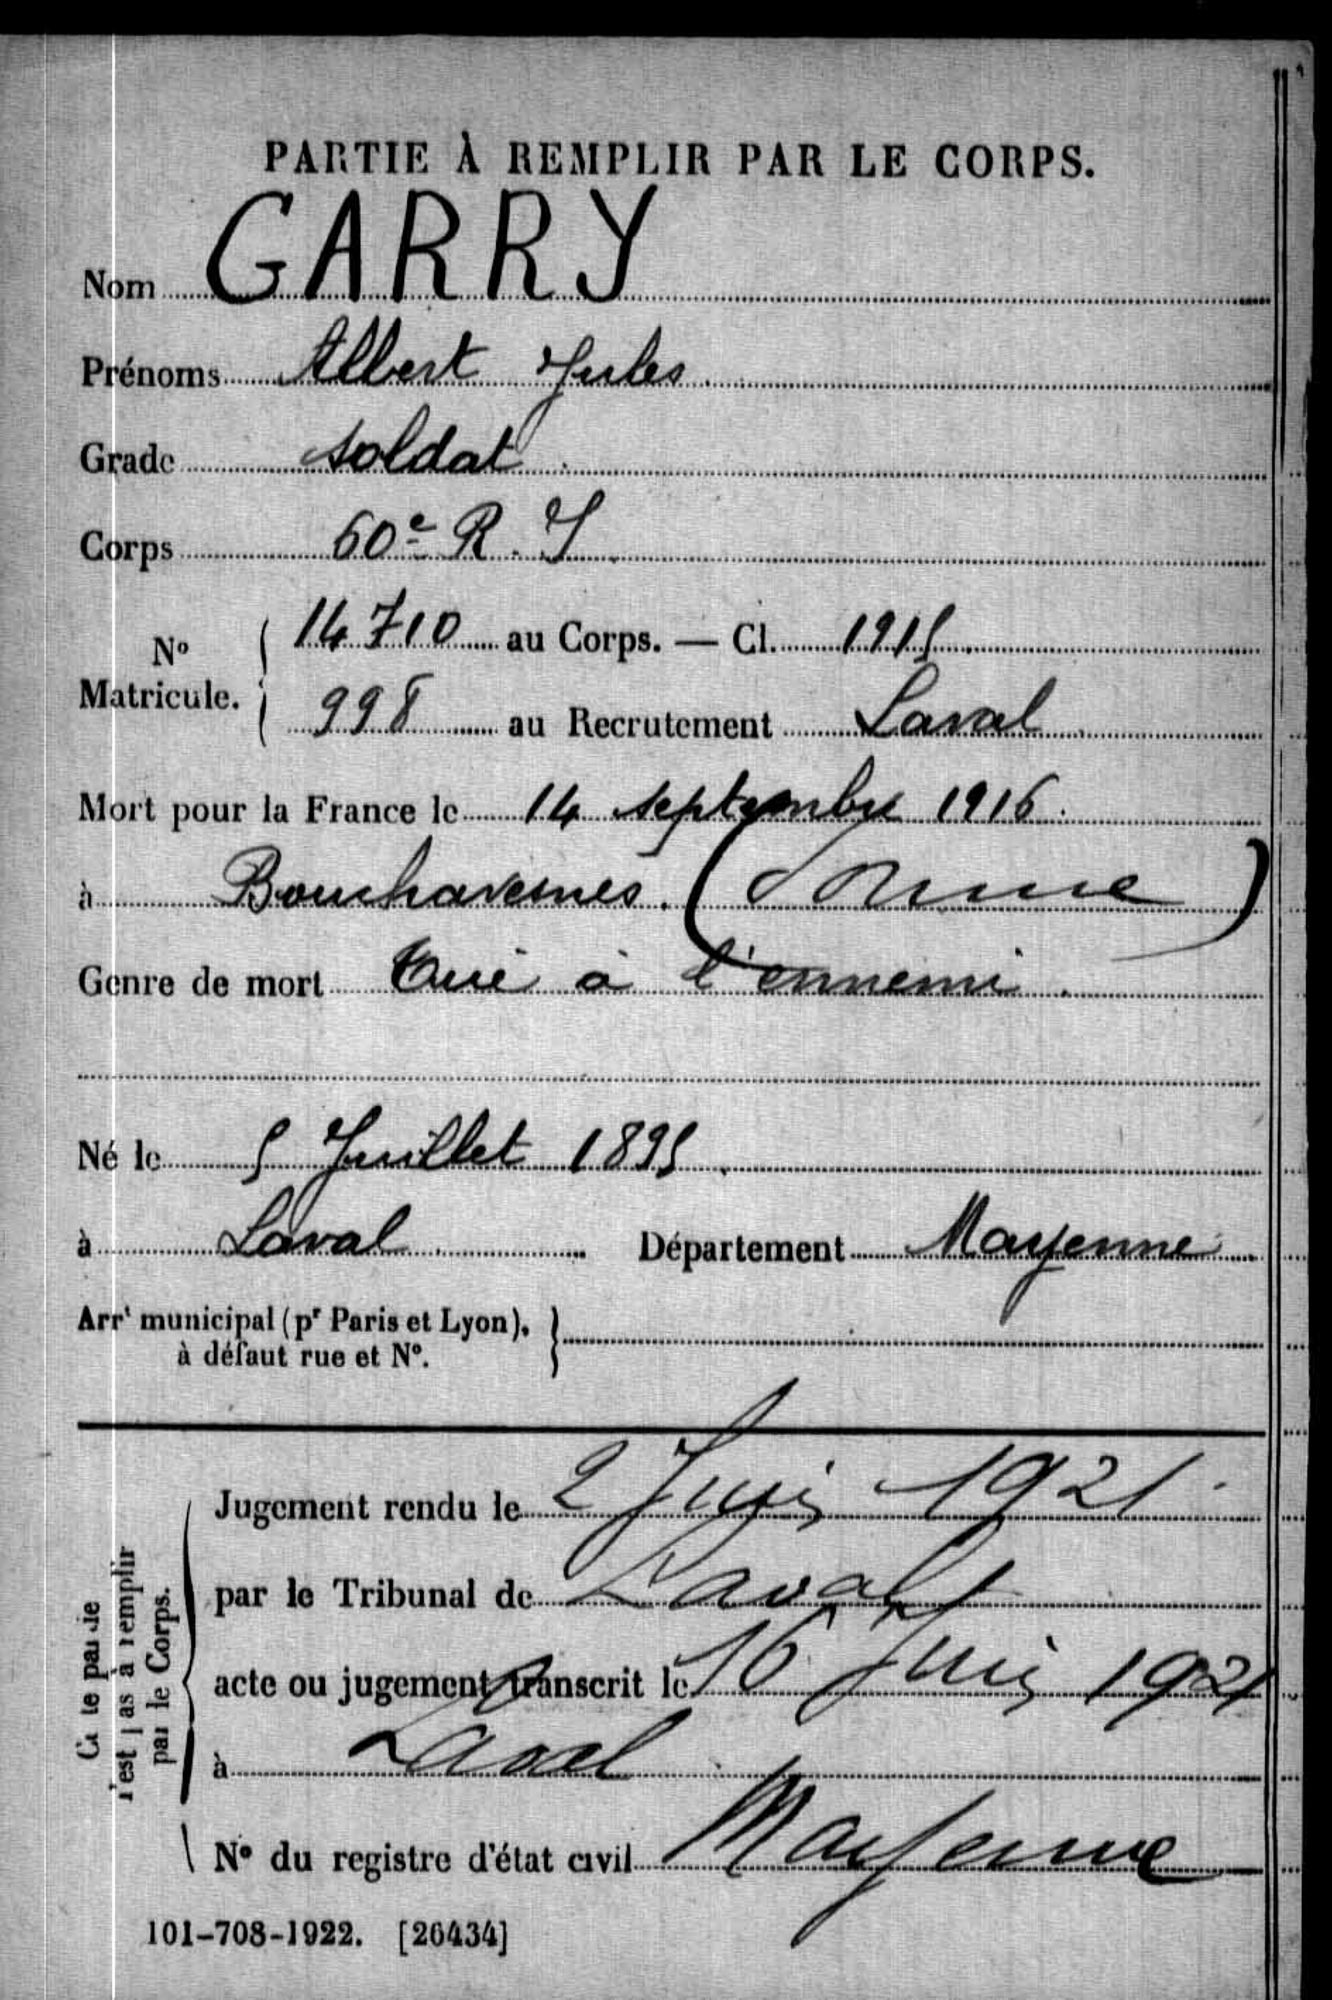 PARTIE À REMPLIR PAR LE CORPS.
Nom GARRY
Prénoms Albert Jules
Grade soldat
Corps 60e R. I
No Matricule. { 14710 au Corps. — Cl. 1915
998 au Recrutement Laval
Mort pour la France le 14 septembre 1916
à Bouchavesnes. (Somme)
Genre de mort Tué à l'ennemi.
Né le 5 Juillet 1895
à Laval Département Mayenne
Arrt municipal (pr Paris et Lyon), à défaut rue et No. }
Jugement rendu le 2 Juin 1921
par le Tribunal de Laval
acte ou jugement transcrit le 16 Juin 1921
à Laval
No du registre d'état civil Mayenne
Cette partie n'est pas à remplir par le Corps.
101-708-1922. [26434]